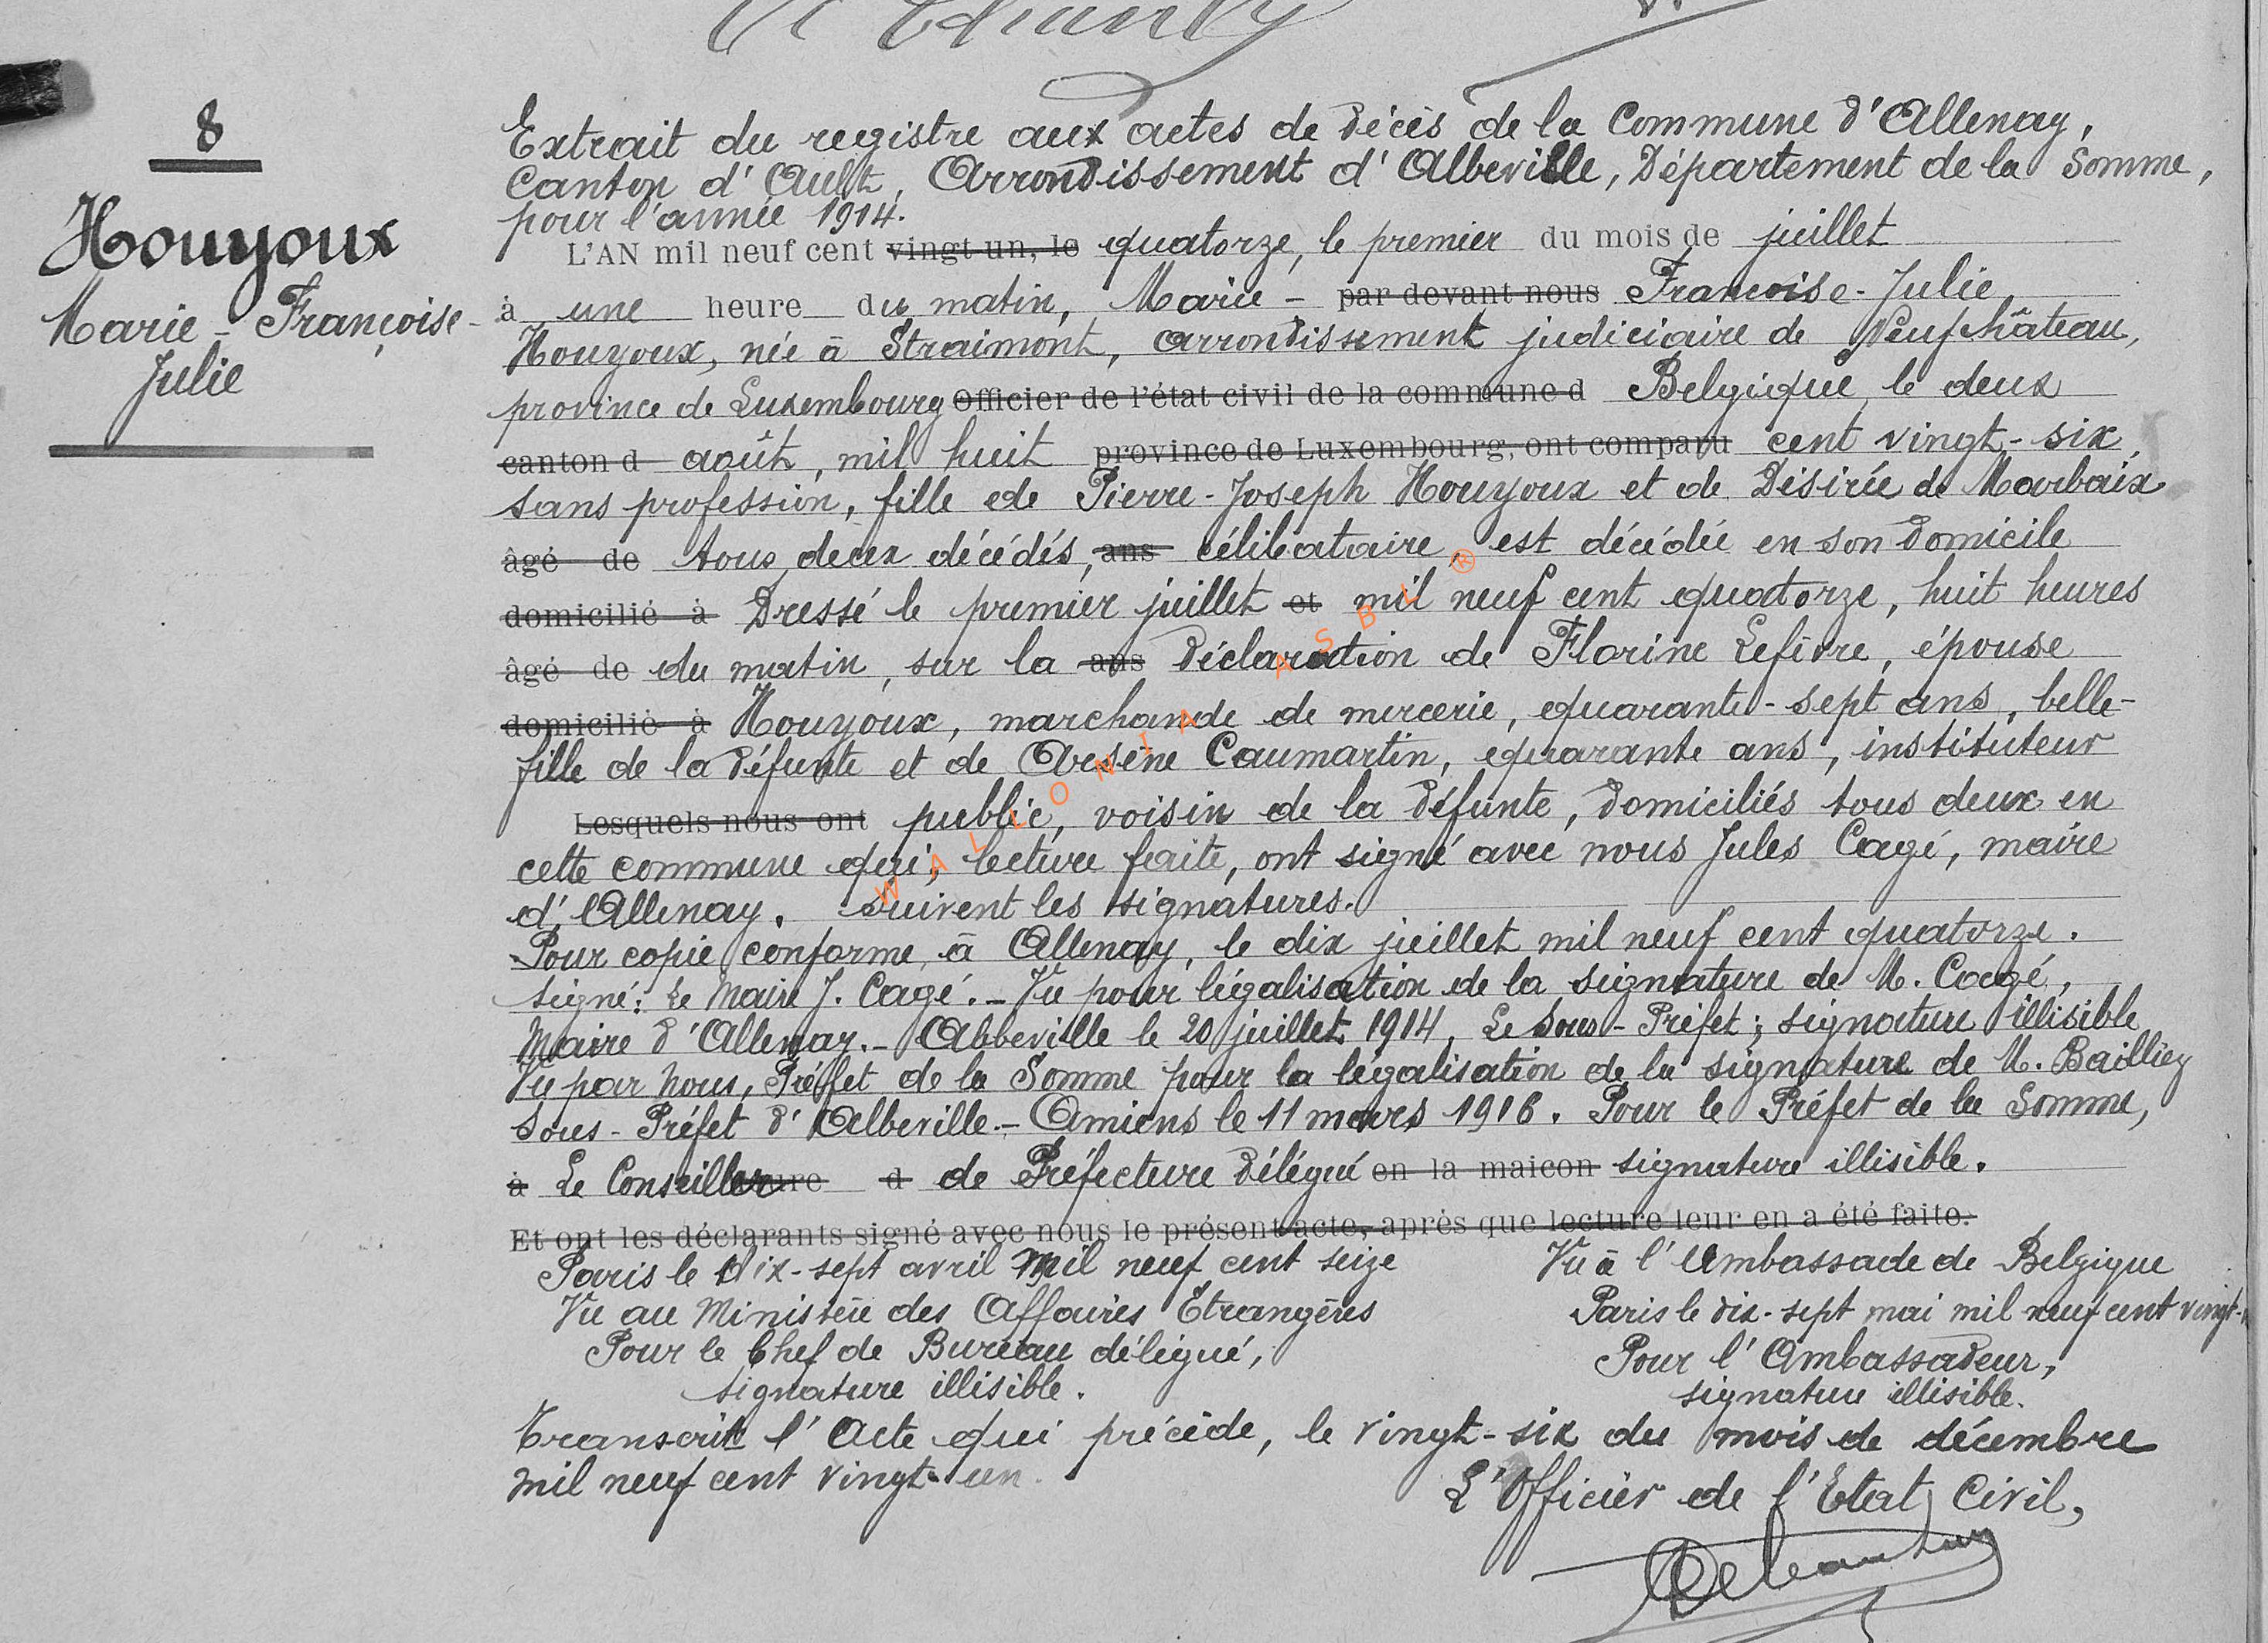 8
Houyoux
Marie - Françoise -
Julie
Extrait du registre aux actes de décès de la Commune d'Allenay,
Canton d'Ault, Arrondissement d'Abbeville, Département de la Somme,
pour l'année 1914.
L'AN mil neuf cent vingt-un, le quatorze, le premier du mois de juillet
à une heure du matin, Marie - par devant nous Françoise - Julie
Houyoux, née à Straimont, arrondissement judiciaire de Neufchâteau,
province de Luxembourg Officier de l'état civil de la commune d Belgique, le deux
canton d août, mil huit province de Luxembourg, ont comparu cent vingt-six,
sans profession, fille de Pierre-Joseph Houyoux et de Désirée de Marbaix
âgé de tous deux décédés, ans célibataire, est décédée en son domicile
domicilié à Dressé le premier juillet et mil neuf cent quatorze, huit heures
âgé de du matin, sur la ans déclaration de Florine Lefèvre, épouse
domicilié à Houyoux, marchande de mercerie, quarante-sept ans, belle-
fille de la défunte et de Arsène Caumartin, quarante ans, instituteur
Lesquels nous ont public, voisin de la défunte, domiciliés tous deux en
cette commune qui, lecture faite, ont signé avec nous Jules Cagé, maire
d'Allenay. Suivent les signatures.
Pour copie conforme, à Allenay, le dix juillet mil neuf cent quatorze.
signé: Le Maire J. Cagé. - Vu pour légalisation de la signature de M. Cagé,
Maire d'Allenay. - Abbeville le 20 juillet 1914, Le Sous-Préfet; signature illisible
Vu par nous, Préfet de la Somme pour la légalisation de la signature de M. Bailliez
Sous-Préfet d'Abbeville. - Amiens le 11 mars 1916. Pour le Préfet de la Somme,
à Le Conseiller d de Préfecture délégué en la maison signature illisible.
Et ont les déclarants signé avec nous le présent acte, après que lecture leur en a été faite.
Paris le dix-sept avril mil neuf cent seize
Vu au Ministère des Affaires Étrangères
Pour le Chef de Bureau délégué,
signature illisible.
Vu à l'Ambassade de Belgique
Paris le dix-sept mai mil neuf cent vingt-
Pour l'Ambassadeur,
signature illisible.
Transcrit l'Acte qui précède, le vingt-six du mois de décembre
mil neuf cent vingt-un.
L'Officier de l'Etat Civil,
WALLONIA ASBL ®